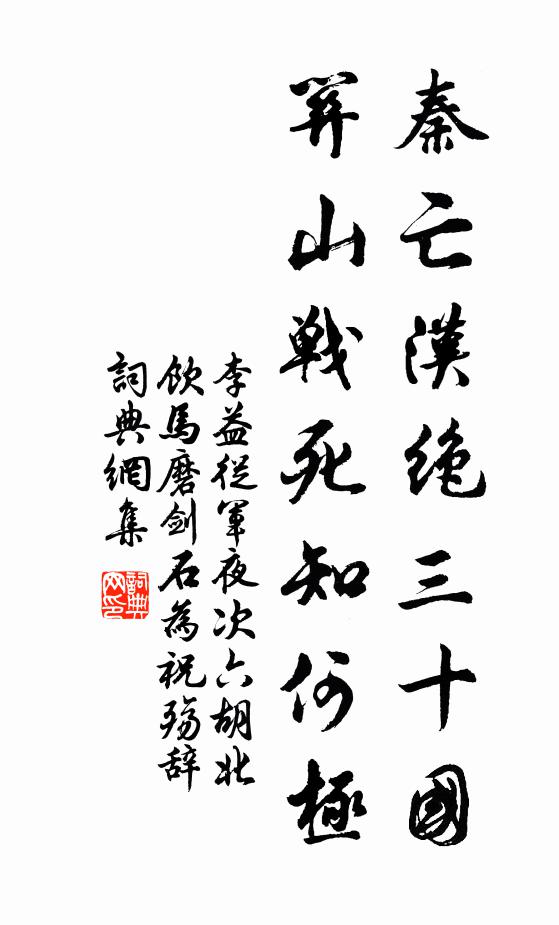 秦亡漢絕三十國
關山戰死知何極
李益從軍夜次六胡北
飲馬磨劍石為祝殤辭
詞典網集
詞典网印